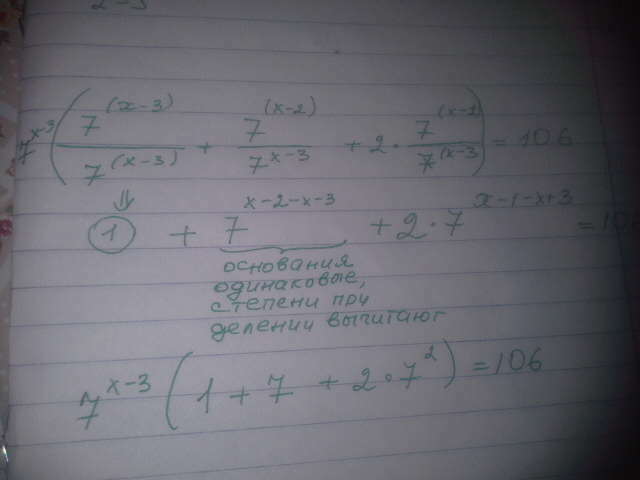 2-3
7^(x-3) ( 7^(x-3) / 7^(x-3) + 7^(x-2) / 7^(x-3) + 2 · 7^(x-1) / 7^(x-3) ) = 106
⇓
1 + 7^(x-2-x-3) + 2 · 7^(x-1-x+3) = 10
основания
одинаковые,
степени при
делении вычитают
7^(x-3) ( 1 + 7 + 2 · 7^2 ) = 106